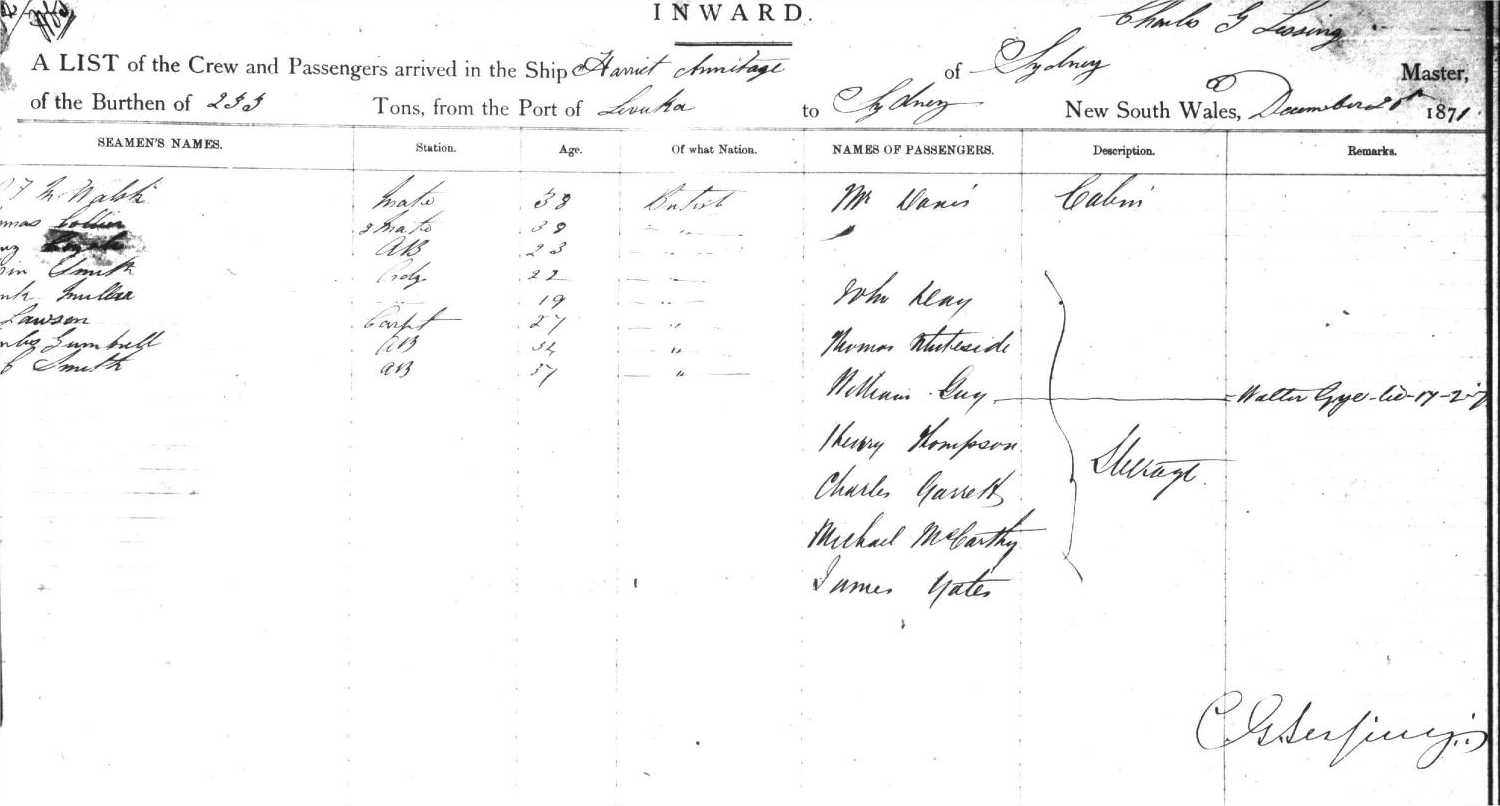 INWARD.
Charles G Lessing
A LIST of the Crew and Passengers arrived in the Ship Harriet Armitage of Sydney Master,
of the Burthen of 233 Tons, from the Port of Levuka to Sydney New South Wales, December 1871
SEAMEN'S NAMES. Station. Age. Of what Nation. NAMES OF PASSENGERS. Description. Remarks.
Walsh Mate 38 British Mr Davis Cabin
Collier 2 Mate 38 "
AB 23 "
Smith 22
Miller 19 " John Deay
Lawson Carpt 27 "
AB "
Thomas Whiteside
Smith AB 37 "
William Guy Walter Gye
Henry Thompson
Steerage
Charles Garrett
Michael McCarthy
James Yates
C G Lessing